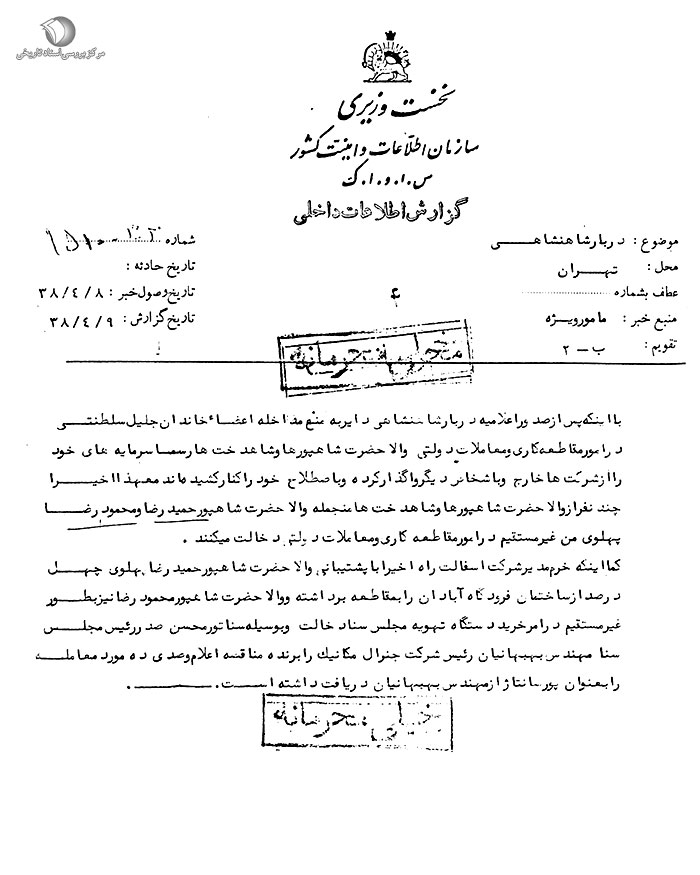 مرکز بررسی اسناد تاریخی
نخست وزیری
سازمان اطلاعات و امنیت کشور
س.ا.و.ا.ک
گزارش اطلاعات داخلی
موضوع : دربار شاهنشاهی
شماره
محل : تهران
تاریخ حادثه :
عطف بشماره
تاریخ وصول خبر : ۳۸/۴/۸
منبع خبر : مامور ویژه
تاریخ گزارش : ۳۸/۴/۹
تقویم : ب – ۲
خیلی محرمانه
با اینکه پس از صدور اعلامیه دربار شاهنشاهی دایر به منع مداخله اعضاء خاندان جلیل سلطنتی
در امور مقاطعه کاری و معاملات دولتی والاحضرت شاهپورها و شاهدخت ها رسما سرمایه های خود
را از شرکت ها خارج و با شخاص دیگر واگذار کرده و باصطلاح خود را کنار کشیده اند معهذا اخیرا
چند نفر از والاحضرت شاهپورها و شاهدخت ها منجمله والاحضرت شاهپور حمید رضا و محمود رضا
پهلوی من غیر مستقیم در امور مقاطعه کاری و معاملات دولتی دخالت میکنند .
کما اینکه خرم مدیر شرکت اسفالت راه اخیرا با پشتیبانی والاحضرت شاهپور حمید رضا پهلوی چهل
درصد از ساختمان فرودگاه آبادان را بمقاطعه برداشته و والاحضرت شاهپور محمود رضا نیز بطور
غیر مستقیم در امر خرید دستگاه تهویه مجلس سنا دخالت و بوسیله سناتور محسن صدر رئیس مجلس
سنا مهندس بهبهانیان رئیس شرکت جنرال مکانیک را برنده مناقصه اعلام و صدی ده مورد معامله
را بعنوان پورسانتاژ از مهندس بهبهانیان دریافت داشته است .
خیلی محرمانه